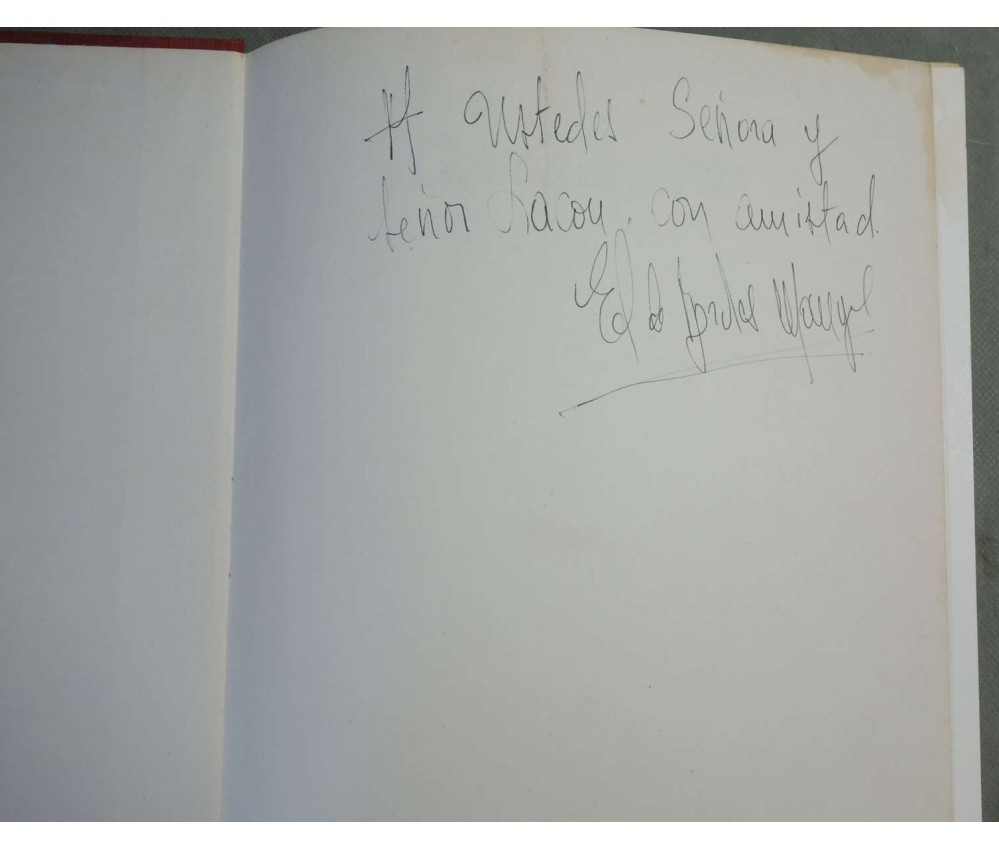 A Ustedes Señora y
señor Lacou, con amistad.
Ed de